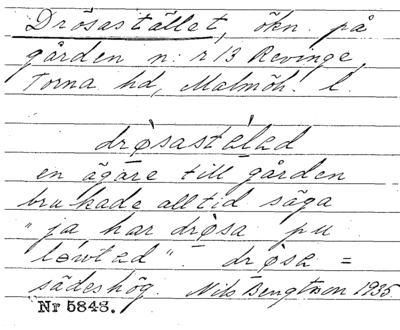 Drösastället, ökn. på
gården n: r 13 Revinge,
Torna hd, Malmöh. l.
drøsastæ̀led
en ägare till gården
brukade alltid säga
"ja har drøsa pu
lowted". drøsa =
sädeshög. Nils Bengtsson 1935
Nr 5843.